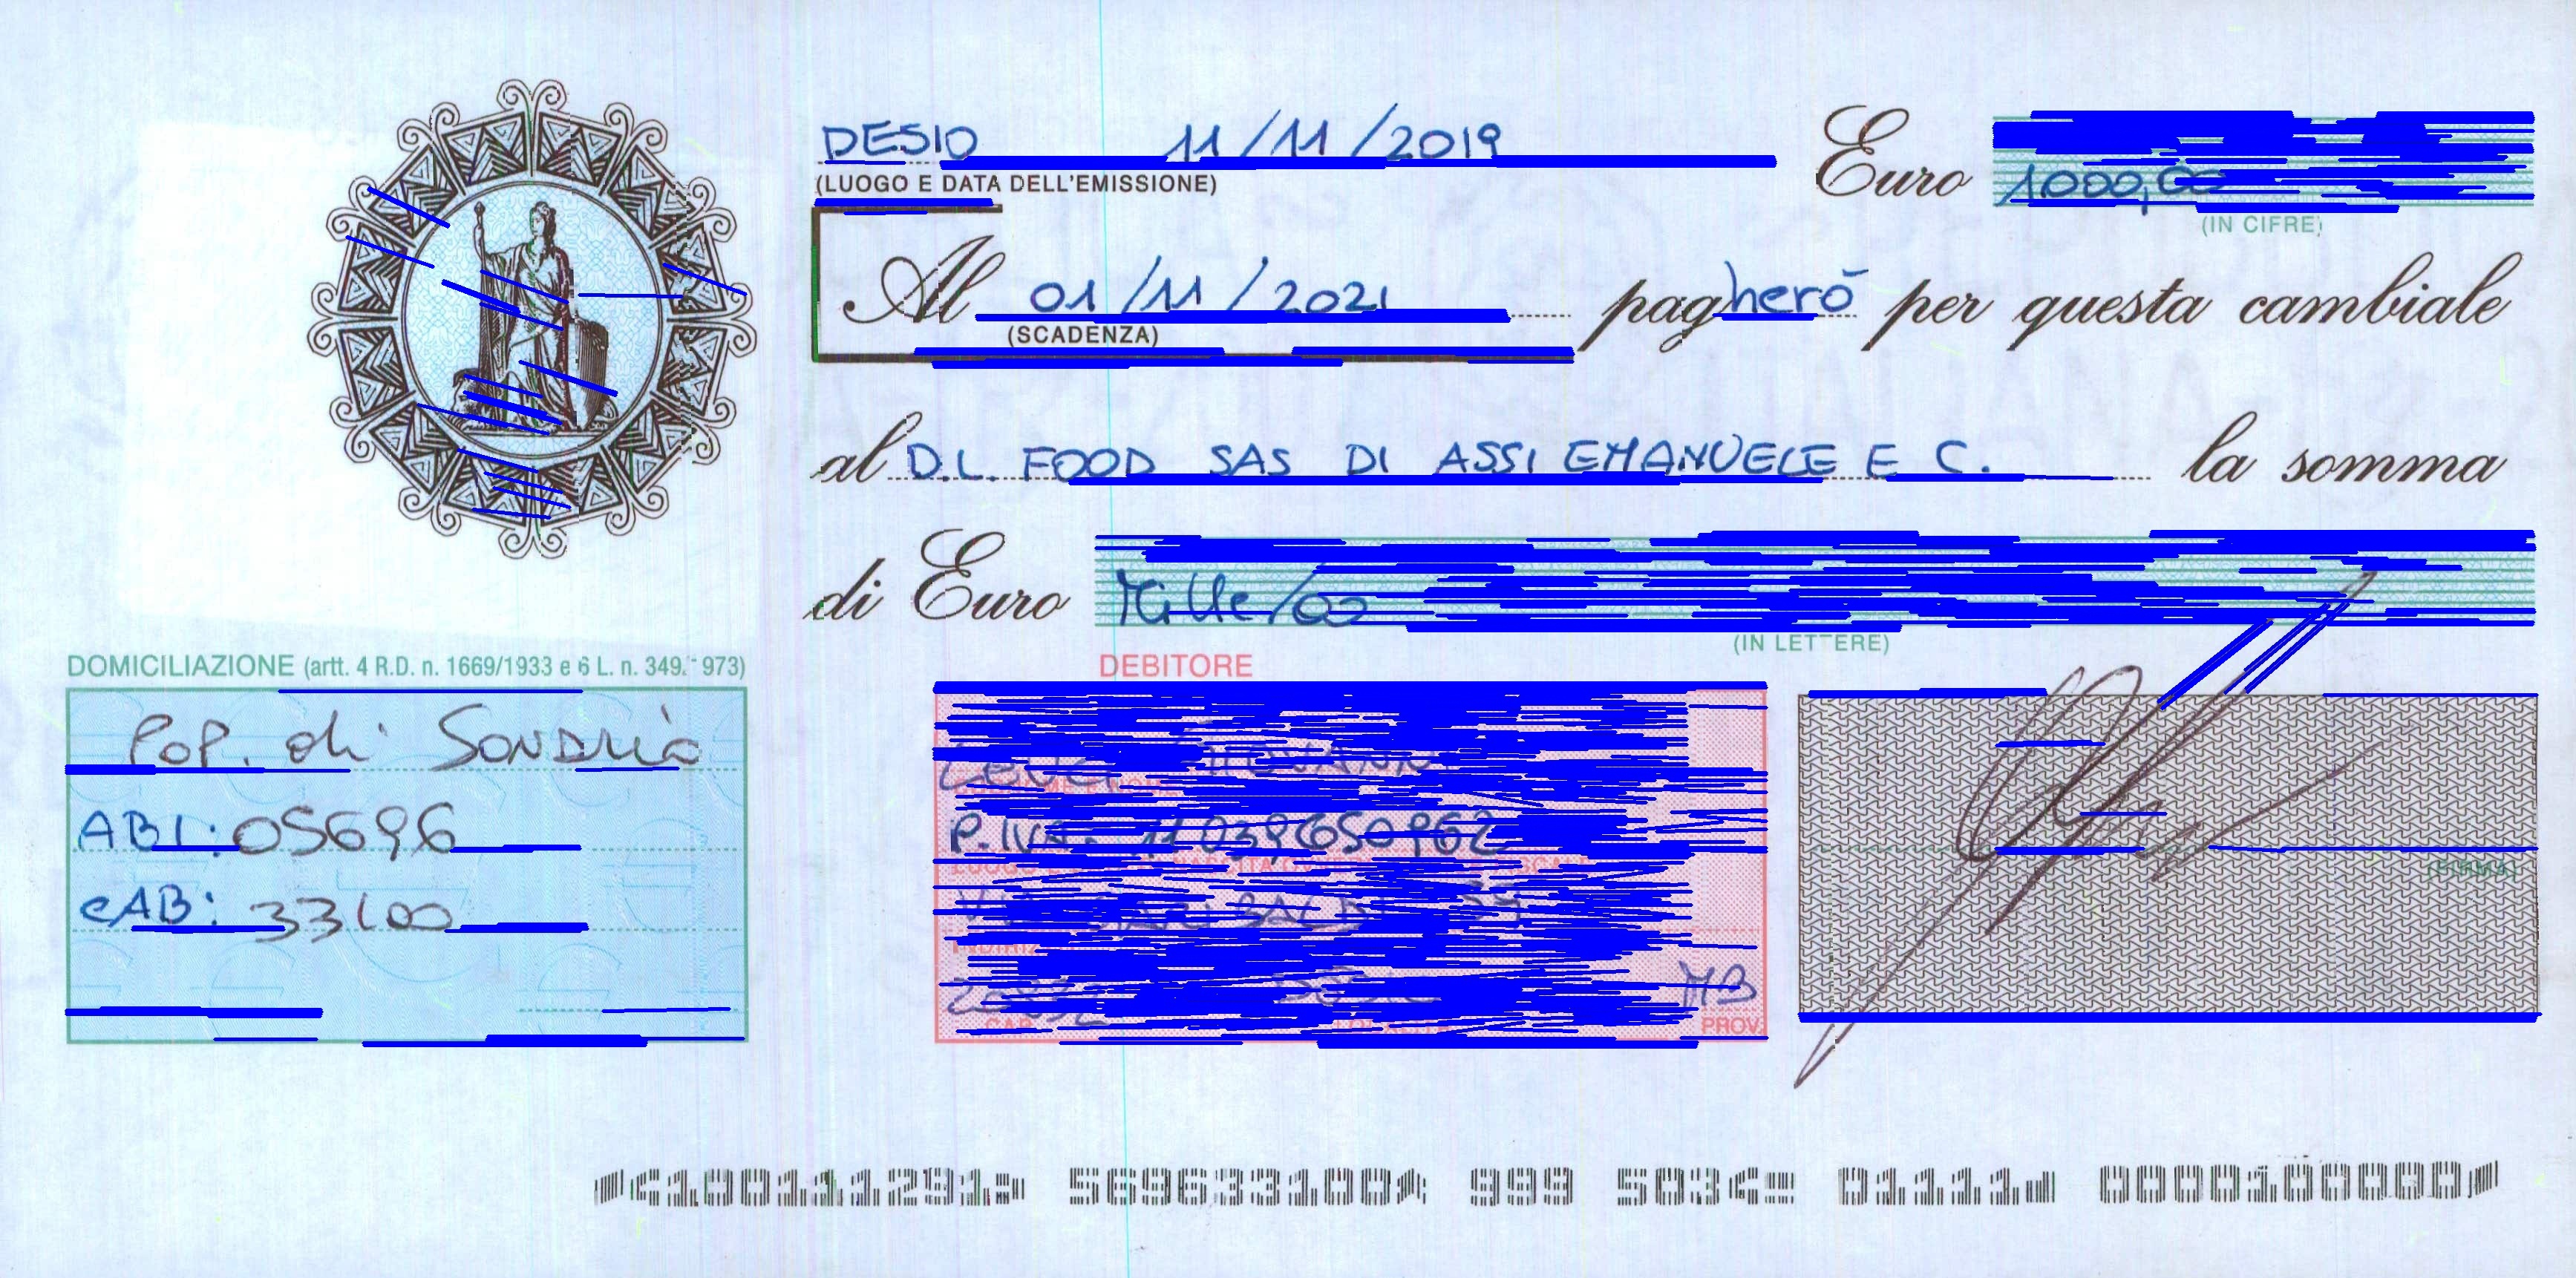 DESIO 11/11/2019
(LUOGO E DATA DELL'EMISSIONE)
Euro 1000,00
(IN CIFRE)
Al 01/11/2021 pagherò per questa cambiale
(SCADENZA)
al D.L. FOOD SAS DI ASSI EMANUELE E C. la somma
di Euro Mille/00
(IN LETTERE)
DOMICILIAZIONE (artt. 4 R.D. n. 1669/1933 e 6 L. n. 349. 973)
POP. di SONDRIO
ABI: 05696
CAB: 33100
DEBITORE
P.IVA: 11039650962
MB
PROV.
(FIRMA)
100111291 569633100 999 5034 01111 0000100000